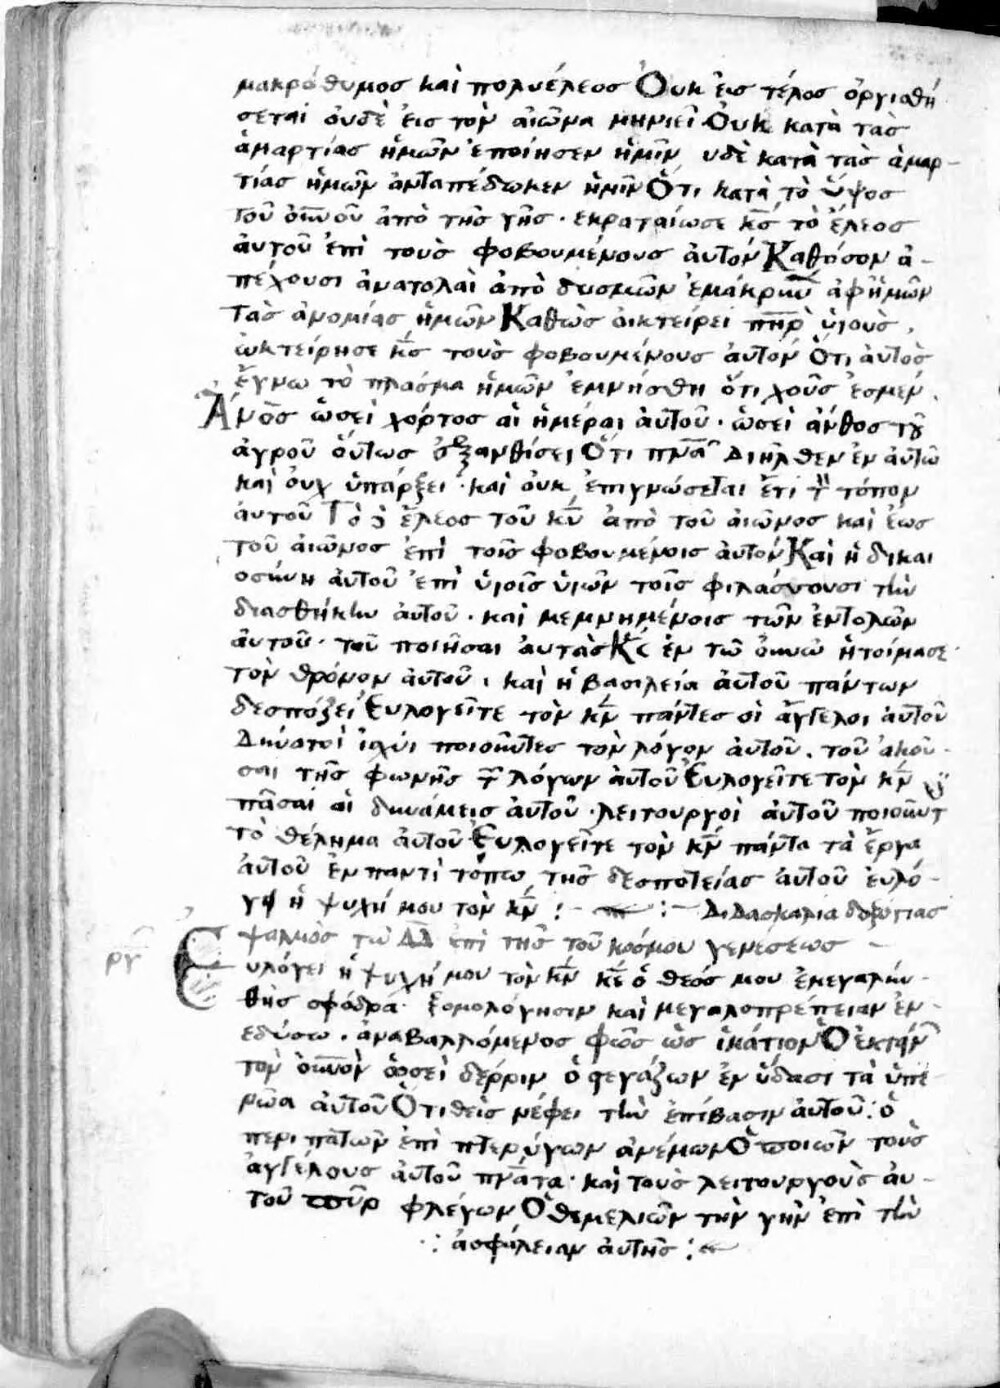 μακρόθυμος και πολυέλεος Ὀυκ ἐις τέλος ὀργισθή
σεται ὀυδὲ ἐις τὸν αἰῶνα μηνιεῖ Ὀυ κατὰ τὰς
ἁμαρτίας ἡμῶν ἐποίησεν ἡμῖν, υδὲ κατὰ τὰς ἁμαρ-
τίας ἡμῶν ἀνταπέδωκεν ἡμῖν Ὅτι κατὰ τὸ ὕψος
τοῦ ὀυνοῦ ἀπὸ τῆς γῆς · εκραταίωσε κς τὸ ἔλεος
ἀυτοῦ ἐπὶ τοὺς φοβουμένους ἀυτόν Καθόσον ἀ-
πέχουσι ἀνατολαὶ ἀπὸ δυσμῶν ἐμάκρυν ἀφἡμῶν
Τὰς ἀνομίας ἡμῶν Καθὼς ὀικτείρει πηρ ὑιοὺς,
ὠκτείρησε κς τοὺς φοβουμένους ἀυτόν Ὅτι ἀυτὸς
ἔγνω τὸ πλάσμα ἡμῶν ἐμνήσθη ὅτι χοῦς ἐσμέν.
Ἄνος ὡσεὶ χόρτος αἱ ἡμέραι ἀυτοῦ · ὡσεὶ ἄνθος τȣ
ἀγροῦ ὅυτως ἐξανθίσει Ὅτι πνα διῆλθεν ἐν ἀυτῶ
καὶ ὀυχ ὑπάρξει · και ὀυκ ἐπιγνώσεται ἔτι τ τόπον
ἀυτοῦ Τὸ δ ἔλεος τοῦ κυ ἀπὸ τοῦ ἀιῶνος καὶ ἕως
τοῦ ἀιῶνος ἐπὶ τοῖς φοβουμένοις ἀυτόν Καὶ ἡ δικαι
οσύνη ἀυτοῦ ἐπὶ ὑιοῖς ὑιῶν τοῖς φιλάσσουσι τὴν
διασθήκην ἀυτοῦ · καὶ μεμνημένοις τῶν ἐντολῶν
ἀυτοῦ · τοῦ ποιῆσαι ἀυτάς Κς ἐν τῶ ὀυνῶ ἡτοίμασε
τὸν θρόνον ἀυτοῦ, καὶ ἡ βασιλεία ἀυτοῦ πάντων
δεσπόζει Ἐυλογεῖτε τὸν κν πάντες οἱ ἄγγελοι ἀυτοῦ
Δηνατοὶ ἰχύι ποιοῦντες τὸν λόγον ἀυτοῦ. τοῦ ἀκοῦ-
σαι τῆς φωνῆς τ λόγων ἀυτοῦ Ἐυλογεῖτε τὸν κν
πᾶσαι αἱ δυνάμεις ἀυτοῦ · λειτουργοὶ ἀυτοῦ ποιοῦντ
τὸ θέλημα ἀυτοῦ Ἐυλογεῖτε τὸν κν πάντα τὰ ἔργα
ἀυτοῦ ἐν παντὶ τόπω τῆς δεσποτείας ἀυτοῦ ἐυλό-
γη ἡ ψυχή μου τὸν κν :- :- Διδασκαλια
ψαλμὸς τῶ Δδ ἐπὶ τῆς τοῦ κόσμου γενέσεως
ργ Ἐυλόγει ἡ ψυχή μου τὸν κν κε ὁ θεός μου ἐμεγαλύν-
θης σφόδρα · ξομολόγησιν καὶ μεγαλοπρέπειαν ἐν-
εδύσω · ἀναβαλλόμενος φῶς ὡς ἱμάτιον Ὁ ἐκτείν
τὸν ὀυνὸν ὡσεὶ δέρριν ὁ στεγάζων ἐν ὕδασι τὰ ὑπε-
ρῶα ἀυτοῦ Ὁ τιθεὶς νέφει τὴν ἐπίβασιν ἀυτοῦ: ὁ
περιπατῶν ἐπὶ πτερύγων ἀνέμων Ὁ ποιῶν τοὺς
ἀγγέλους ἀυτοῦ πνατα · καὶ τοὺς λειτουργοὺς ἀυ-
τοῦ πῦρ φλέγων Ὁ θεμελιῶν τὴν γῆν ἐπὶ τὴν
∴ ἀσφάλειαν ἀυτῆς :